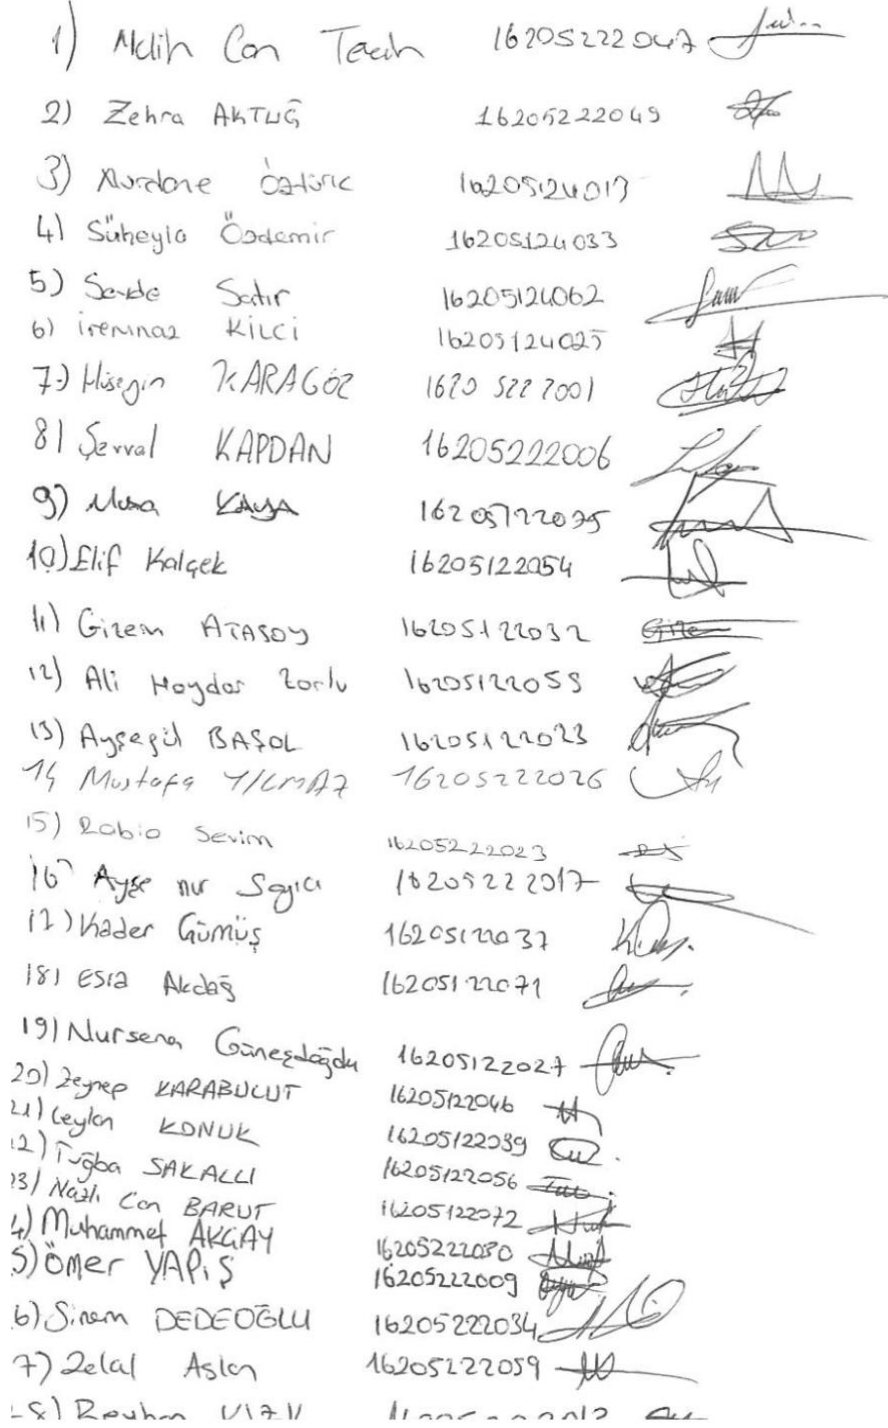 1) Melih Can 16205222047
2) Zehra AKTUĞ 16205222049
3) Nurdane Öztürk 16205124013
4) Süheyla Özdemir 16205124033
5) Sevde Satır 16205124062
6) iremnaz KILCI 16205124025
7-) Hüseyin KARAGÖZ 1620 522 2001
8) Şevval KAPDAN 16205222006
9) Musa KAYA 16205122075
10) Elif Kalçek 16205122054
11) Gizem ATASOY 16205122032
12) Ali Haydar Zorlu 16205122059
13) Ayşegül BAŞOL 16205122023
14 Mustafa YILMAZ 16205222026
15) Rabia Sevim 16205222023
16) Ayşe nur Sayıcı 16205222017
17) Kader Gümüş 16205122037
18) Esra Akdağ 16205122071
19) Nursena Güneşdoğdu 16205122027
20) Zeynep KARABULUT 16205122046
21) Ceylan KONUK 16205122039
2) Tuğba SAKALLI 16205122056
3) Nazlı Can BARUT 16205122072
4) Muhammet AKÇAY 16205222030
5) ÖMer YAPIŞ 16205222009
6) Sinem DEDEOĞLU 16205222034
7) Zelal Aslan 16205222059
8) Reyhan